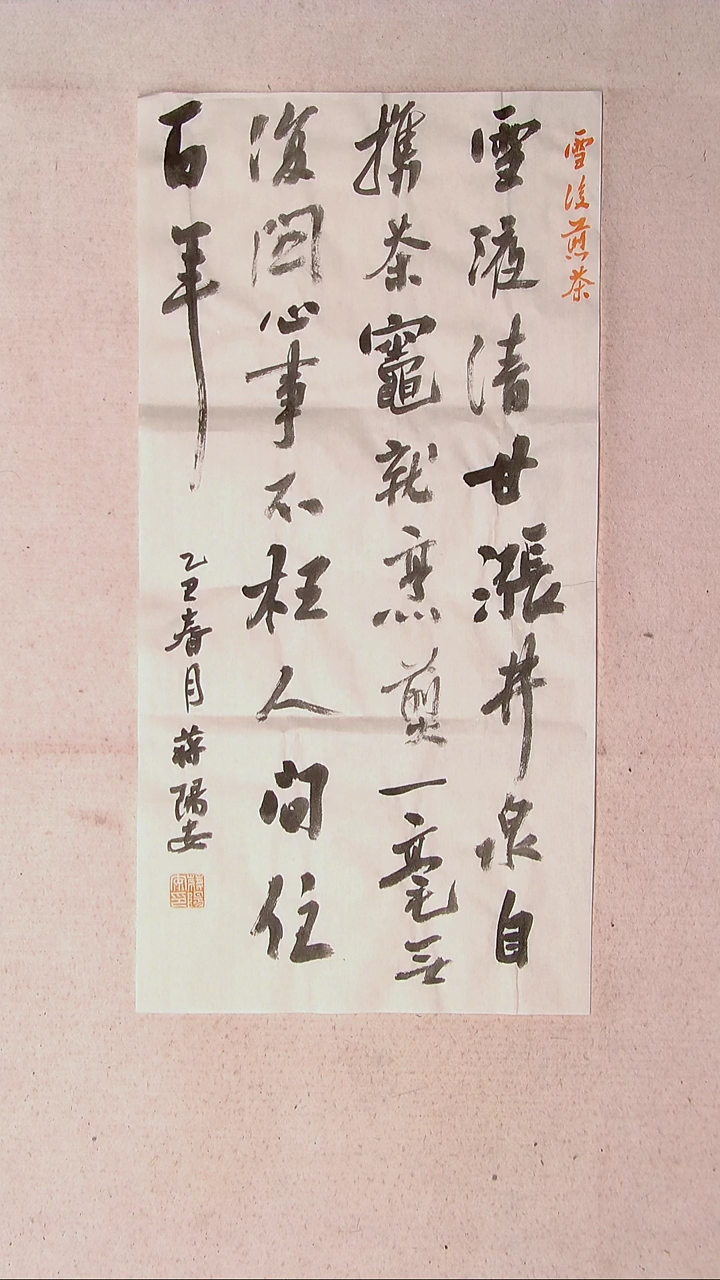 雪後煎茶
雪液清甘漲井泉自
攜茶竈就烹煎一毫無
復関心事不枉人間住
百年
乙巳春月 蔣陽安